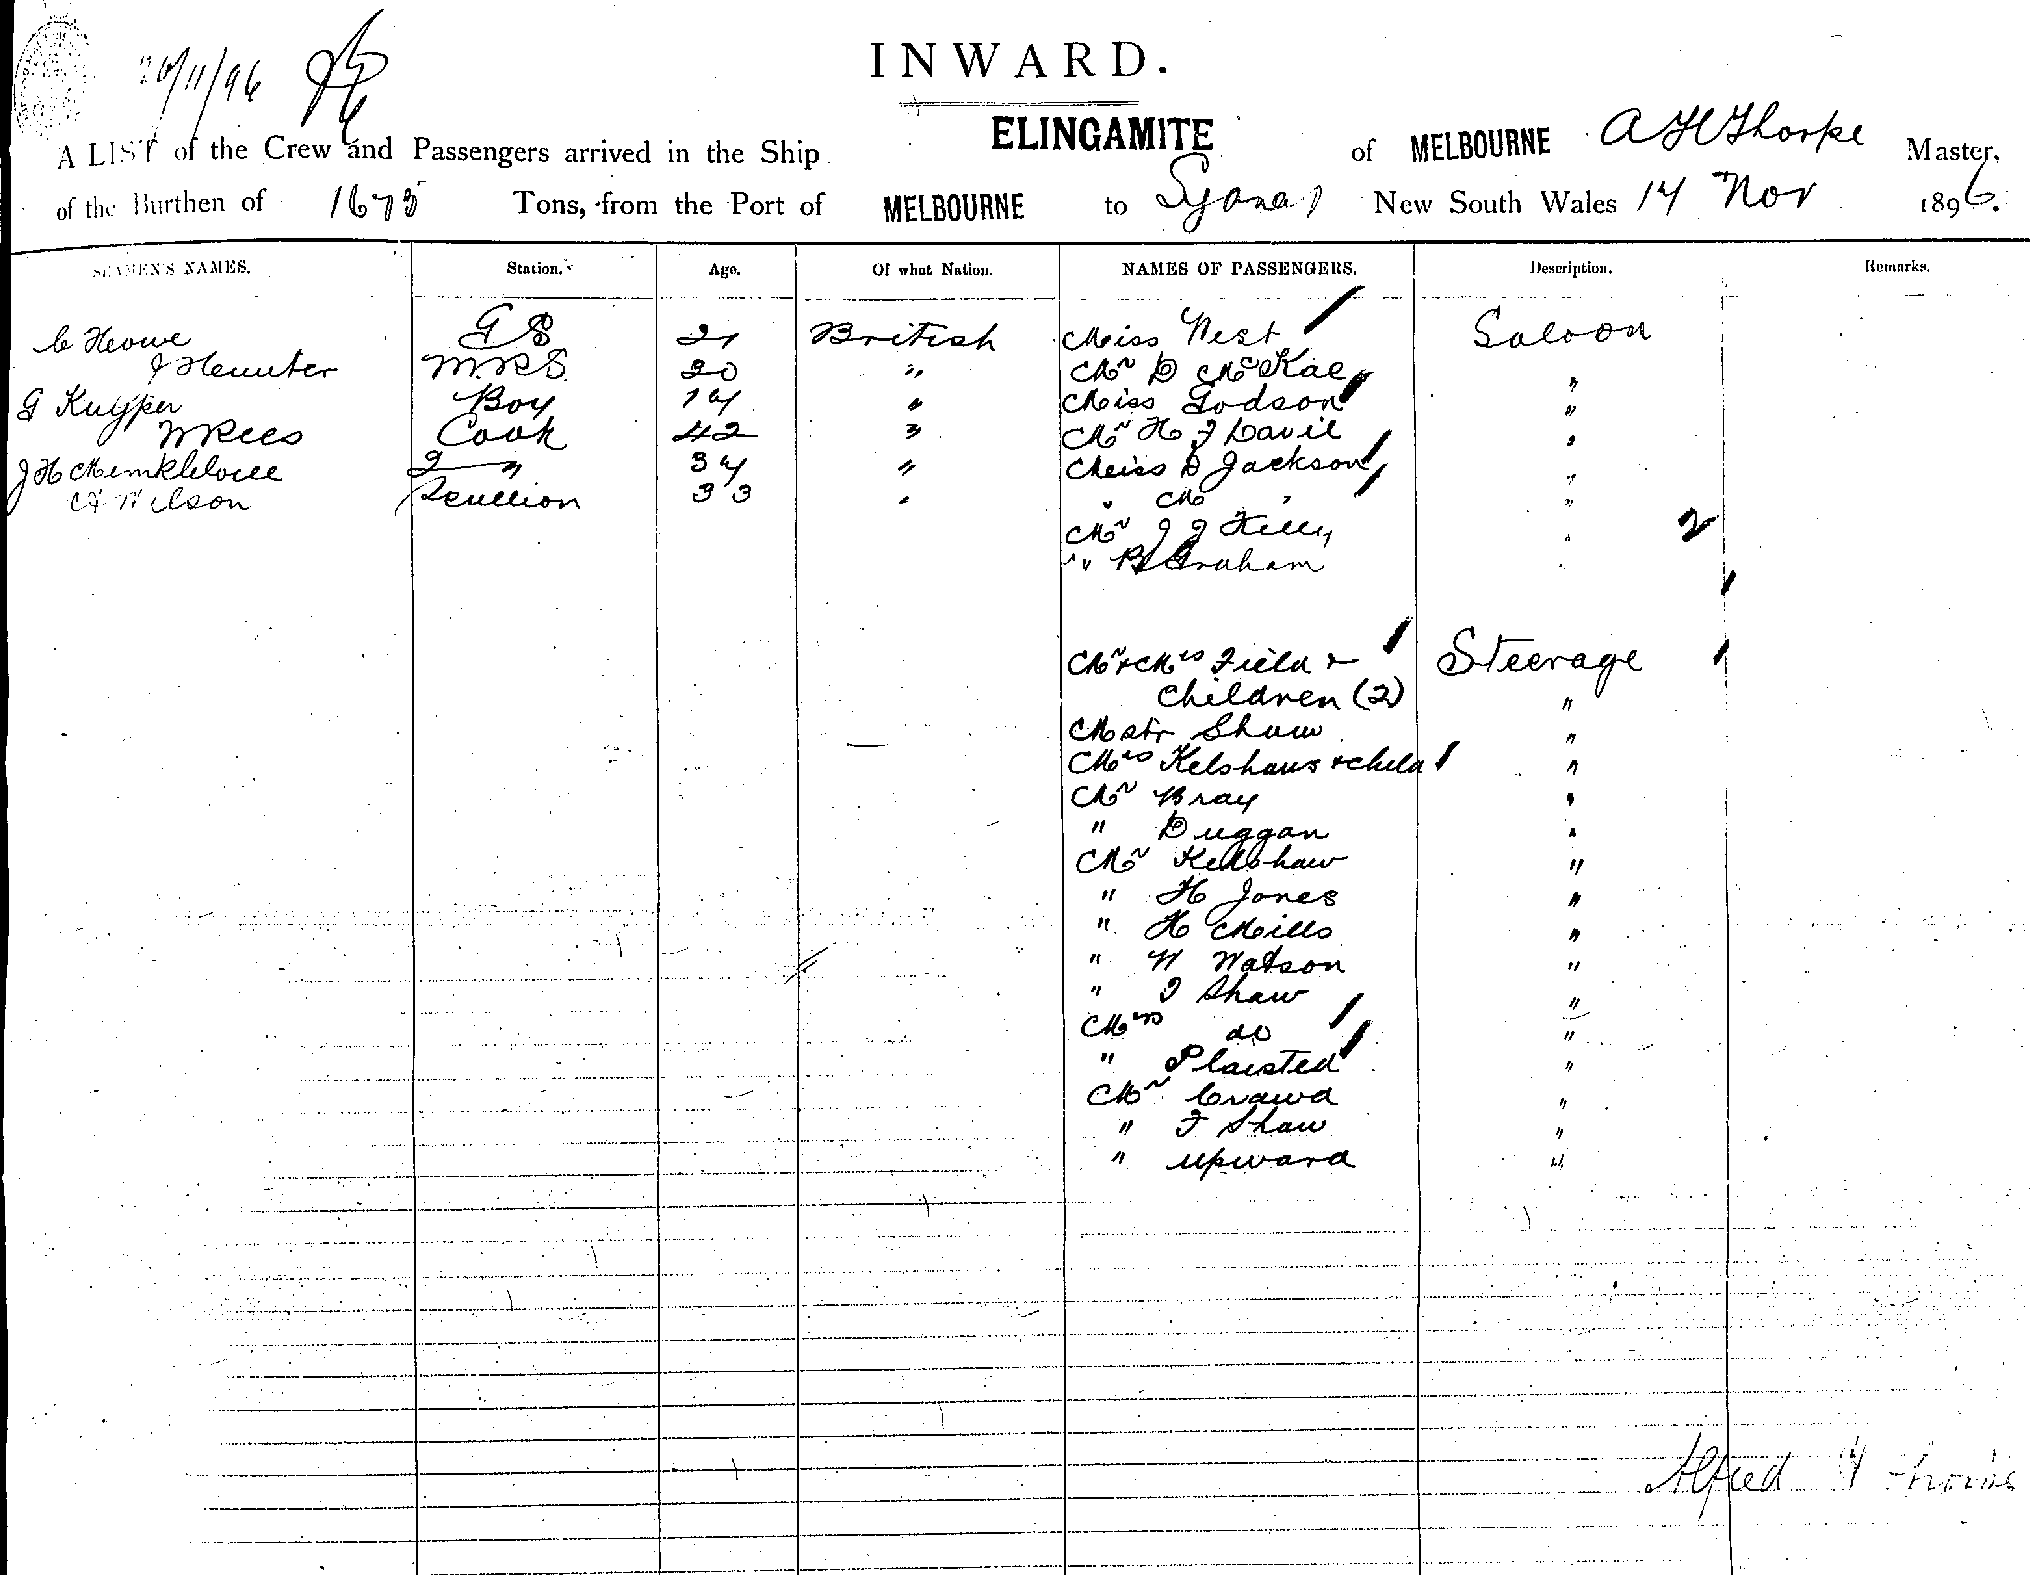 20/11/96
INWARD.
A LIST of the Crew and Passengers arrived in the Ship ELINGAMITE of MELBOURNE A H Thorpe Master,
of the Burthen of 1675 Tons, from the Port of MELBOURNE to Sydney New South Wales 14 Nov 1896.
SEAMEN'S NAMES. Station. Age. Of what Nation. NAMES OF PASSENGERS. Description. Remarks.
C Howe G S 21 British Miss West Saloon
J Hunter M.R.S. 20 " Mr D McKae "
G Kuyper Boy 17 " Miss Godson "
W Rees Cook 42 " Mr H J David "
J H 2 " 34 " Miss D Jackson "
Wilson Scullion 33 " " M " "
Mr J J Kelly " 2
" B Graham "
Mr & Mrs Field & Steerage
Children (2) "
Mstr Shaw "
Mrs Kelshaw & child "
Mr Bray "
" Duggan "
Mr Kelshaw "
" H Jones "
" H Mills "
" W Watson "
" J Shaw "
Mrs do "
" Plaisted "
Mr Crawd "
" F Shaw "
" Upward "
Alfred H Thorpe